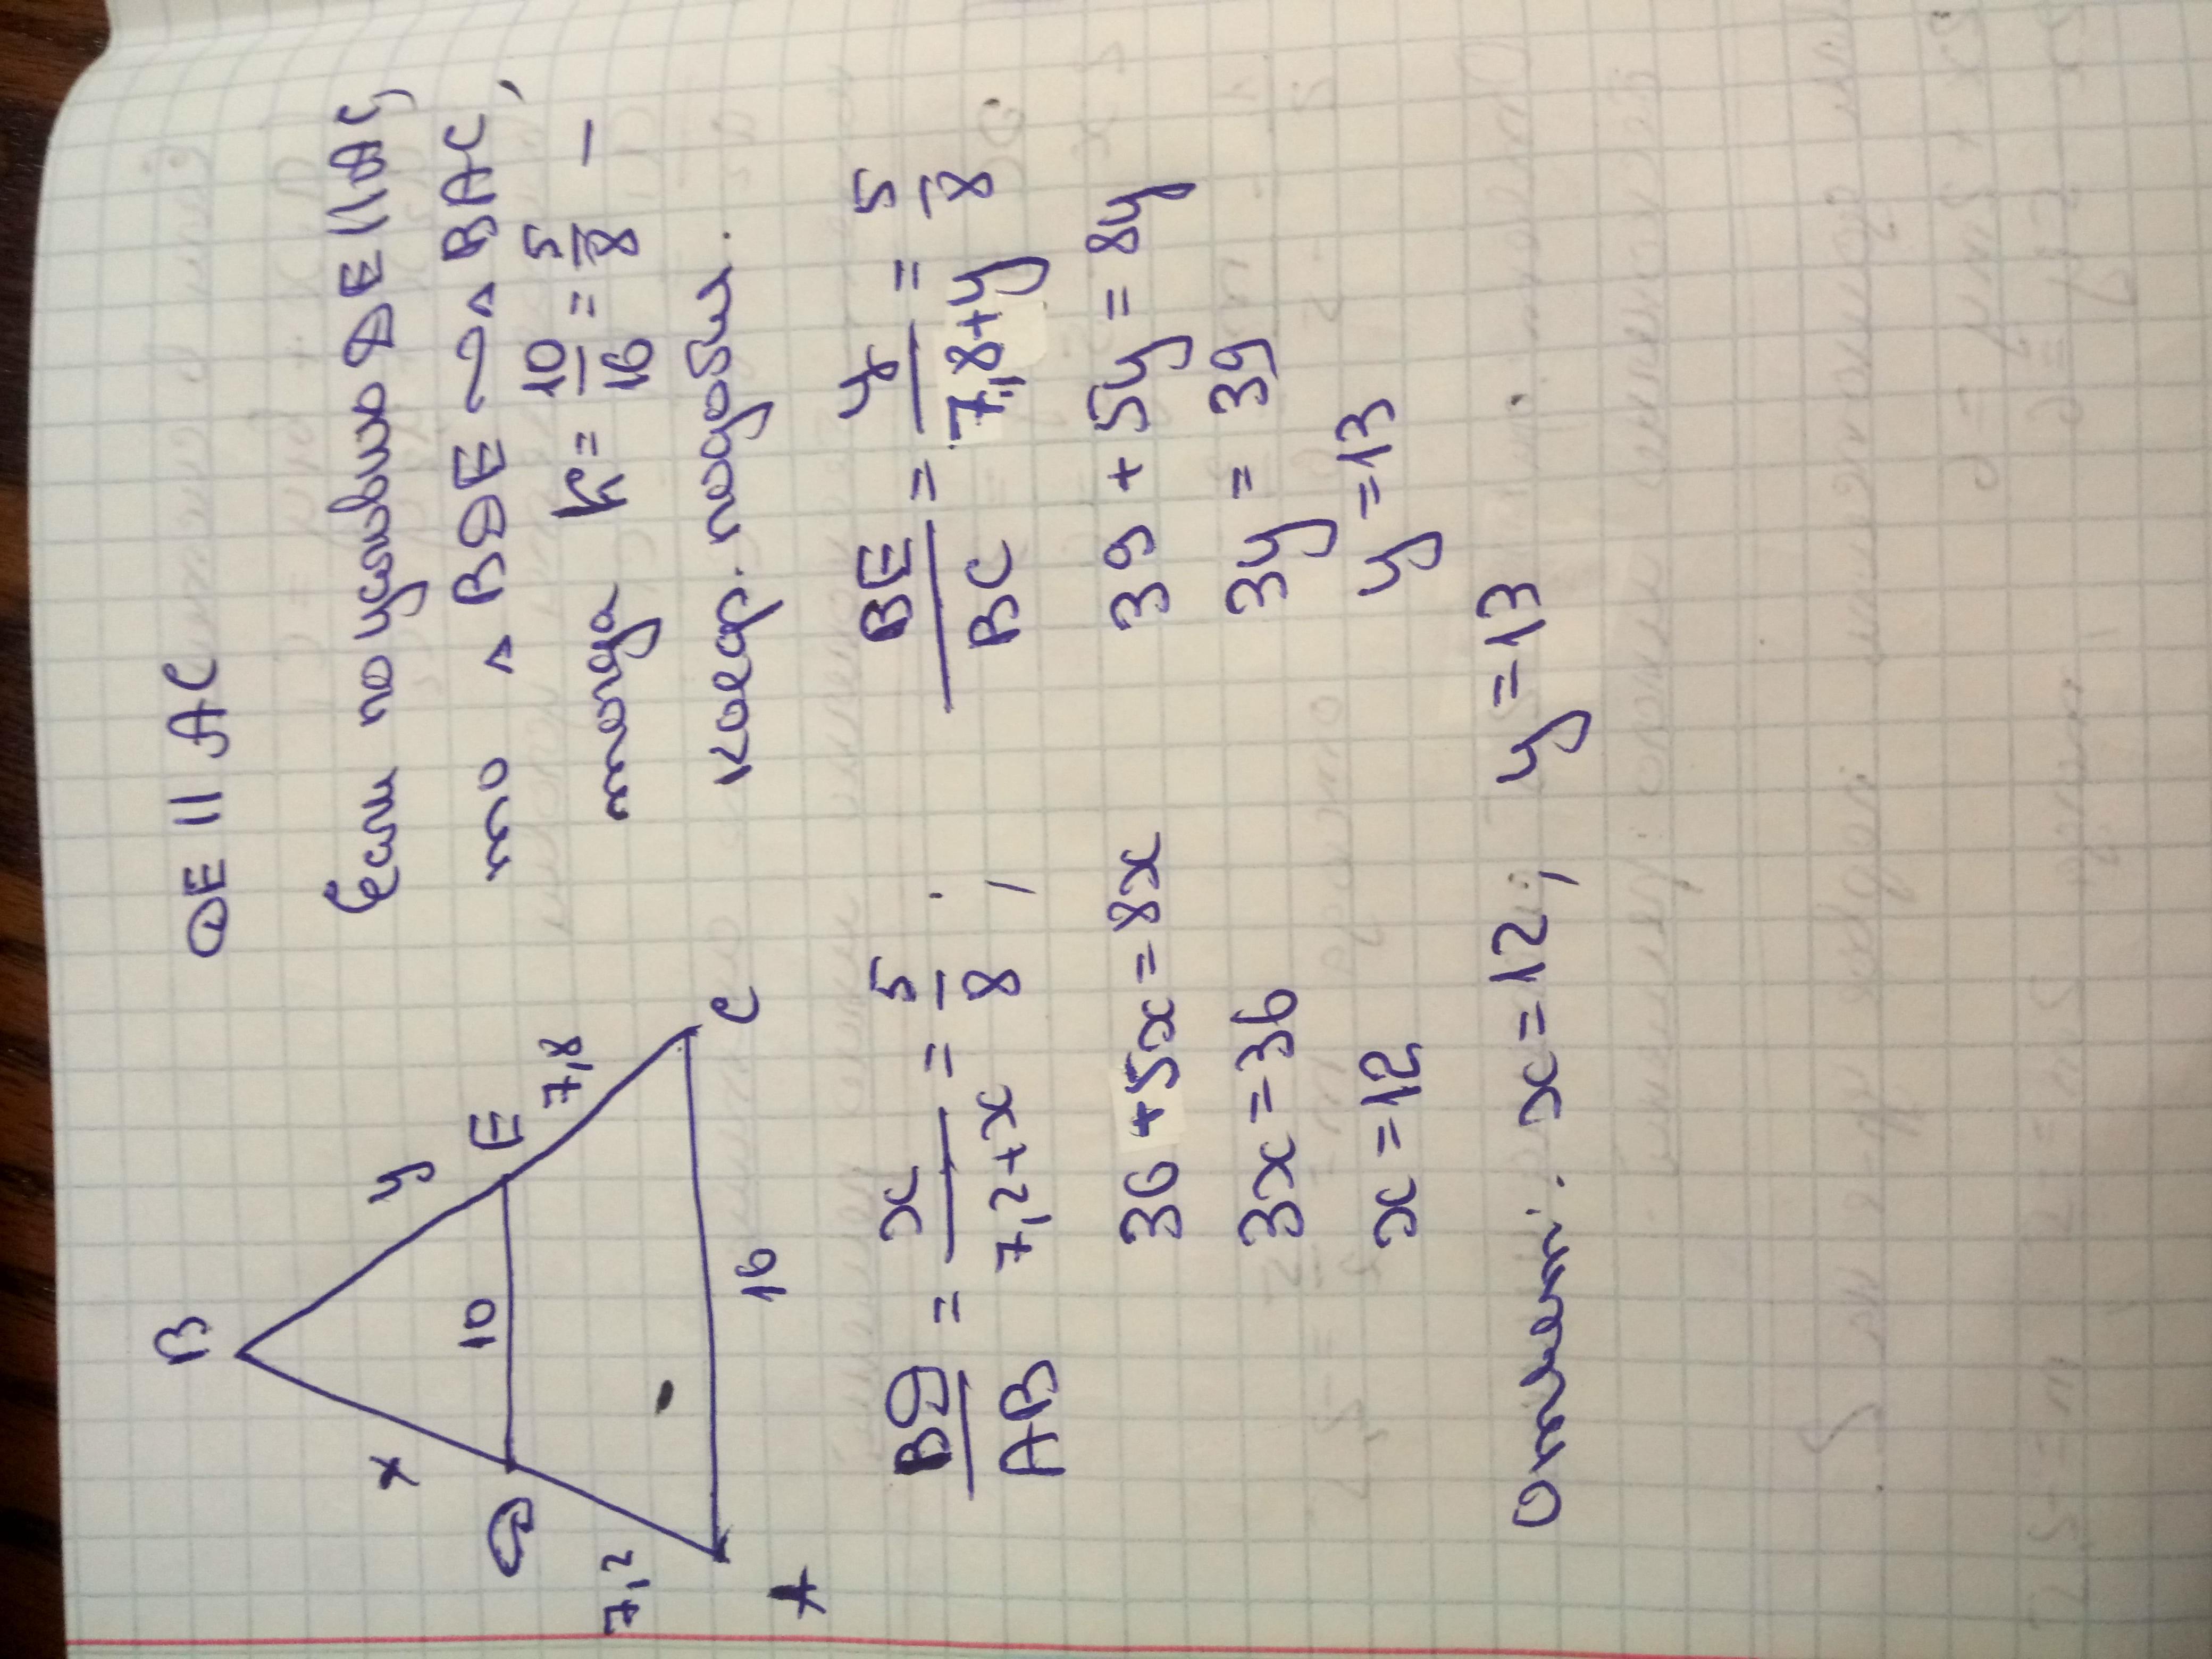 DE || AC
B
x
y
10
D
E
7,2
7,8
A
C
16
Если по условию DE || AC,
то △ BDE ∼ △ BAC,
тогда k = 10/16 = 5/8 –
коэф. подобия.
BD/AB = x/7,2+x = 5/8 ;
BE/BC = y/7,8+y = 5/8
36 + 5x = 8x
39 + 5y = 8y
3x = 36
3y = 39
x = 12
y = 13
Ответ: x = 12, y = 13